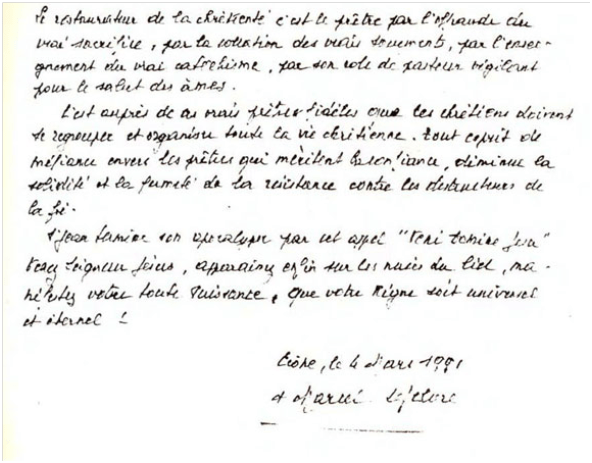 Le restaurateur de la chrétienté c'est le prêtre par l'offrande du
vrai sacrifice, par la collation des vrais sacrements, par l'ensei-
gnement du vrai catéchisme, par son rôle de pasteur vigilant
pour le salut des âmes.
C'est auprès de ces vrais prêtres fidèles que les chrétiens doivent
se regrouper et organiser toute la vie chrétienne. Tout esprit de
méfiance envers les prêtres qui méritent la confiance, diminue la
solidité et la fermeté de la résistance contre les destructeurs de
la foi.
St Jean termine son apocalypse par cet appel "Veni Domine Jesu"
Venez Seigneur Jésus, apparaissez enfin sur les nuées du Ciel, ma-
nifestez votre toute Puissance, que votre Règne soit universel
et éternel !
Ecône, le 4 Mars 1991
+ Marcel Lefebvre